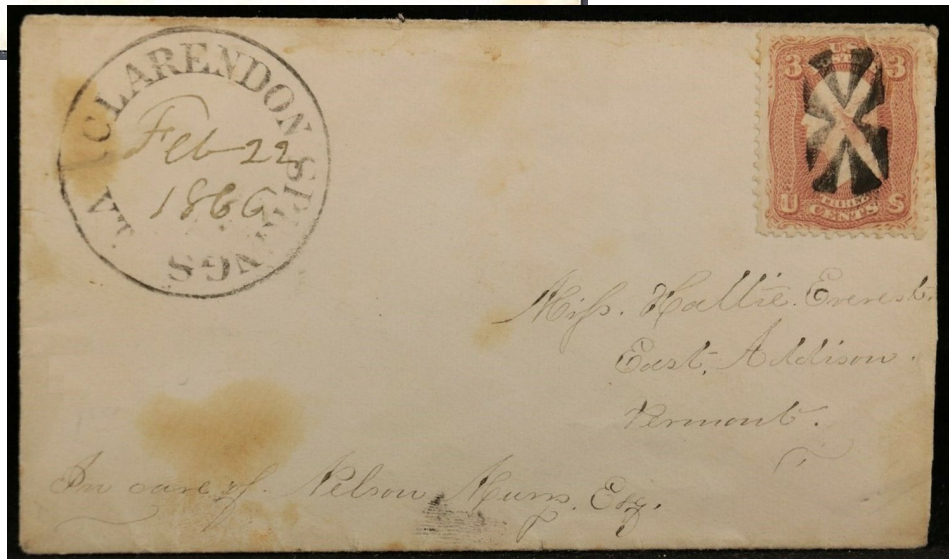 CLARENDON SPRINGS
VT
Feb 22
1866
3 U.S. 3
POSTAGE
U THREE S
CENTS
Miss. Hattie. Everest.
East. Addison.
Vermont.
In care of. Nelson
Esq.